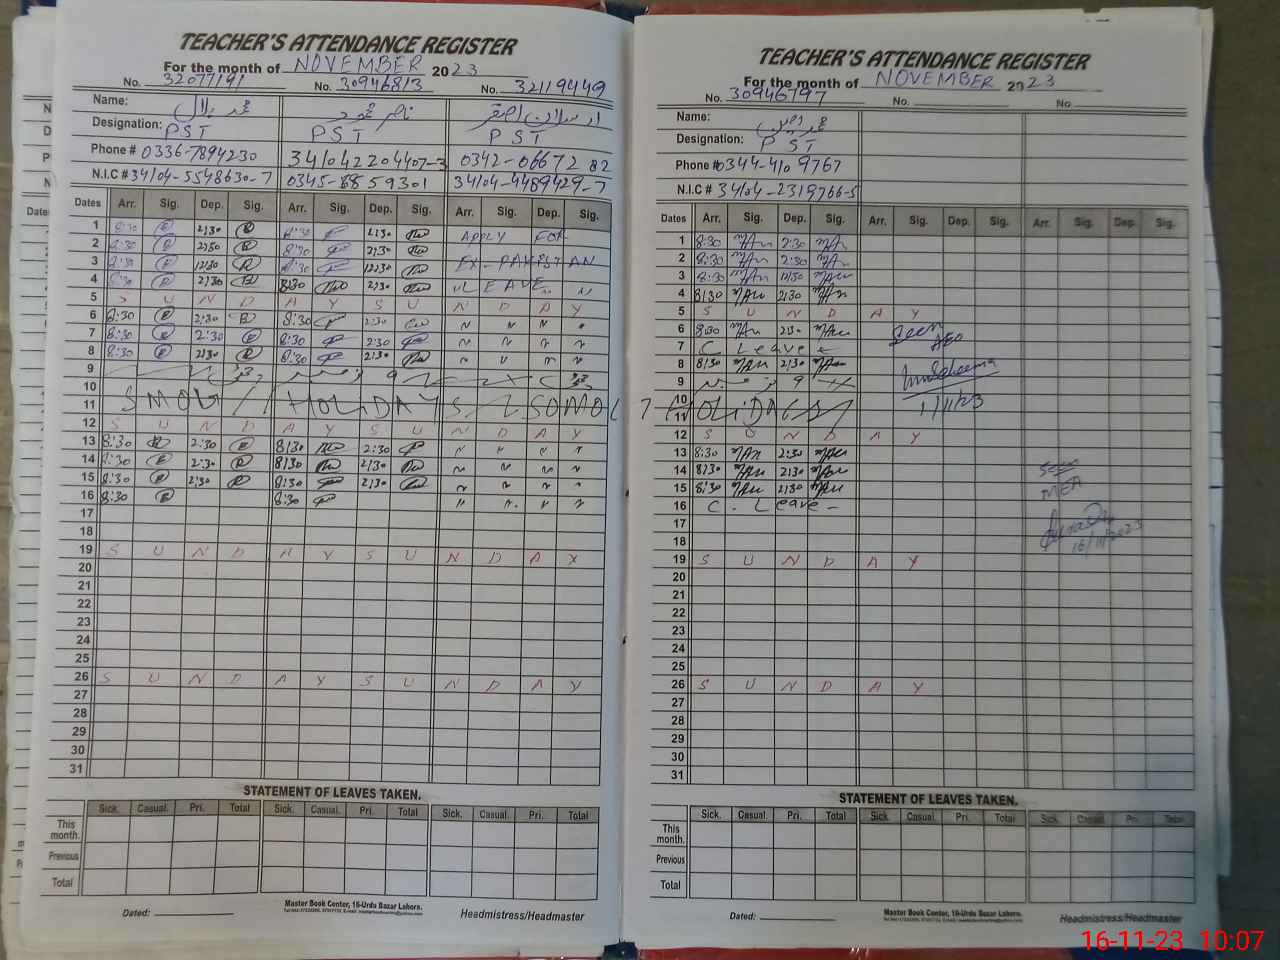 TEACHER'S ATTENDANCE REGISTER
For the month of NOVEMBER 2023
No. 32077191 No. 30946813 No. 32119449
Name: محمد بلال ناصر محمود ارسلان اصغر
Designation: PST PST PST
Phone # 0336-7894230 341042204407-3 0342-0667282
N.I.C # 34104-5548630-7 0345-6859301 34104-4489429-7
Dates Arr. Sig. Dep. Sig. Arr. Sig. Dep. Sig. Arr. Sig. Dep. Sig.
1 8:30 2:30 8:30 2:30 APPLY FOR
2 8:30 2:30 8:30 2:30
3 8:30 12:30 8:30 12:30 EX-PAKISTAN
4 8:30 2:30 8:30 2:30 LEAVE
5 S U N D A Y S U N D A Y
6 8:30 2:30 8:30 2:30 " " " "
7 8:30 2:30 8:30 2:30 " " " "
8 8:30 2:30 8:30 2:30 " " " "
9
10
11 SMOG HOLIDAYS SMOG
12 S U N D A Y S U N D A Y
13 8:30 2:30 8:30 2:30 " " " "
14 8:30 2:30 8:30 2:30 " " " "
15 8:30 2:30 8:30 2:30 " " " "
16 8:30 8:30 " " " "
17
18
19 S U N D A Y S U N D A Y
20
21
22
23
24
25
26 S U N D A Y S U N D A Y
27
28
29
30
31
STATEMENT OF LEAVES TAKEN.
Sick. Casual. Pri. Total Sick. Casual. Pri. Total Sick. Casual. Pri. Total
This month.
Previous
Total
Dated:
Master Book Center, 16-Urdu Bazar Lahore.
Headmistress/Headmaster
TEACHER'S ATTENDANCE REGISTER
For the month of NOVEMBER 2023
No. 30946797 No. No.
Name:
Designation: PST
Phone # 0344-4109767
N.I.C # 34104-2319766-5
Dates Arr. Sig. Dep. Sig. Arr. Sig. Dep. Sig. Arr. Sig. Dep. Sig.
1 8:30 2:30
2 8:30 2:30
3 8:30 12:30
4 8:30 2:30
5 S U N D A Y
6 8:30 2:30 Seen
7 C Leave AEO
8 8:30 2:30
9
10 1/11/23
11 HOLIDAYS
12 S U N D A Y
13 8:30 2:30
14 8:30 2:30 Seen
15 8:30 2:30 MEA
16 C. Leave
17
18 16/11/2023
19 S U N D A Y
20
21
22
23
24
25
26 S U N D A Y
27
28
29
30
31
STATEMENT OF LEAVES TAKEN.
Sick. Casual. Pri. Total Sick. Casual. Pri. Total Sick. Casual. Pri. Total
This month.
Previous
Total
Dated:
Master Book Center, 16-Urdu Bazar Lahore.
Headmistress/Headmaster
16-11-23 10:07